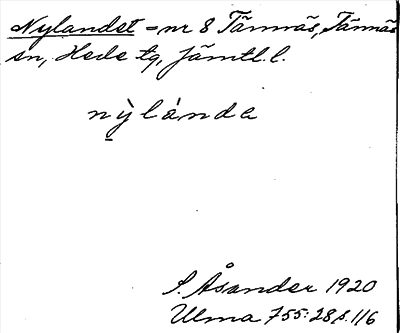 Nylandet = nr 8 Tännäs, Tännäs
sn, Hede tg, Jämtl. l.
nỳlánda
S. Åsander 1920
Ulma 755:28, s. 116